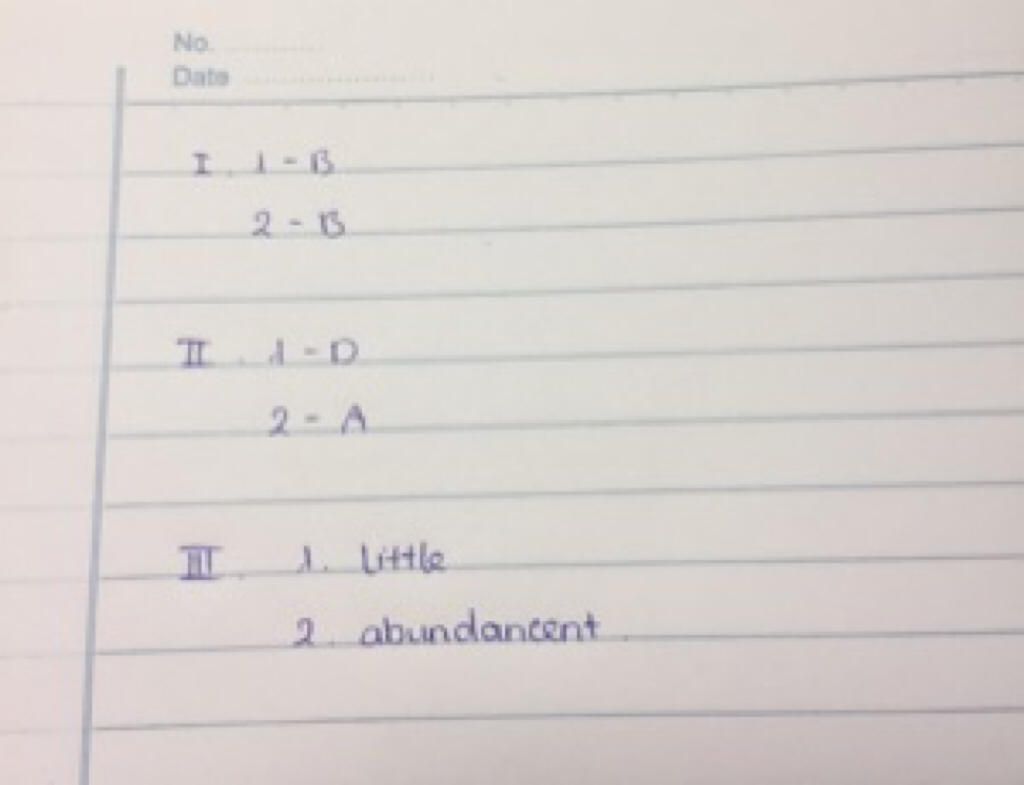 No.
Date
I. 1 - B
2 - B
II. 1 - D
2 - A
III. 1. little
2. abundancent.